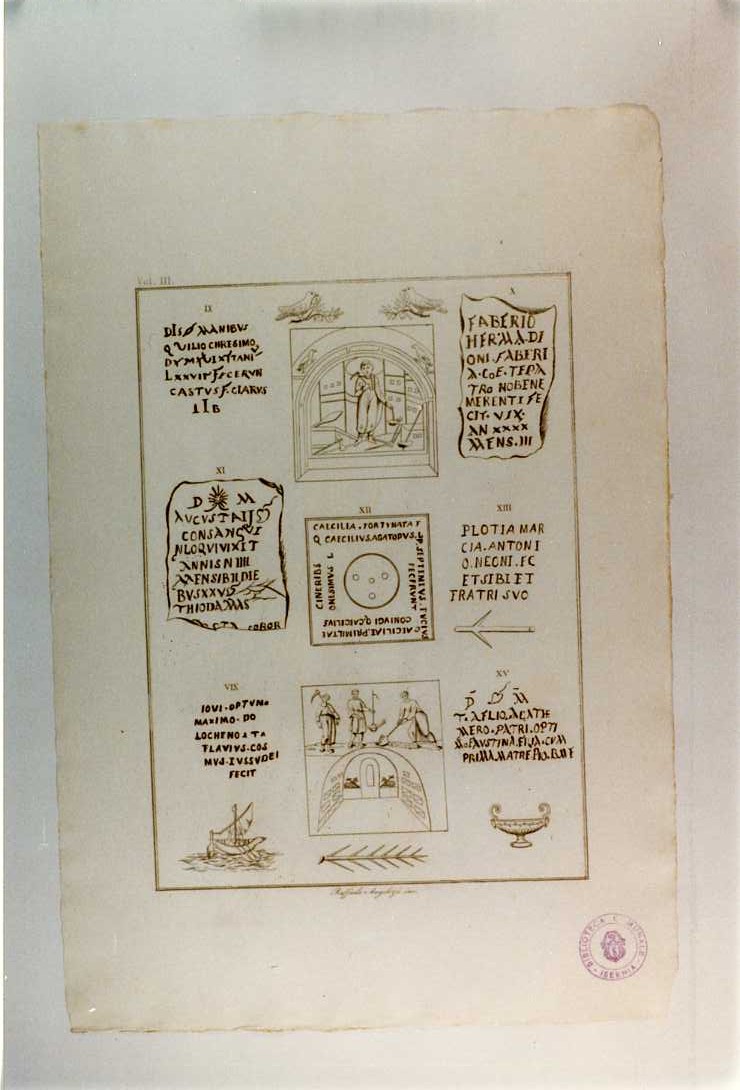 Vol. III.
IX
DIS MANIBUS
Q VILIO CHRESIMO
CASTVS F. CLARVS
LIB
X
FABERIO
HERMADI
ONI. FABERI
A. COE. TEPA
TRO NOBENE
MERENTI FE
CIT. VIX.
AN XXXX
MENS. III
XI
D M
AUCUSTALI
CONSANGUI
NLOQVIVIXIT
ANNIS N IIII
MENSIBII DIE
BVSXXVS
THIODAMAS
XII
CALCILIA. FORTVNATA F
Q CAECILIVS. AGATOPVS. L
SEPTIMIVS. LVCIVS
CALCILIAE. PRIMILTAE
CONIVGI Q. CAICILIVS
CINERIBS
FECIRVNT
XIII
PLOTIA MAR
CIA. ANTONI
O. NEONI. FC
ET SIBI. ET
FRATRI SVO
VIX
IOVI. OPTVMO
MAXIMO. DO
LOCHENO
FLAVIVS. COS
MVS. IVSSVDEI
FECIT
XV
D D M
T. AFLIO. AGATH
MERO. PATRI. OPTI
MO. FAVSTINA. FILIA. CVM
PRIMA. MATRE
BIBLIOTECA COMUNALE
ISERNIA